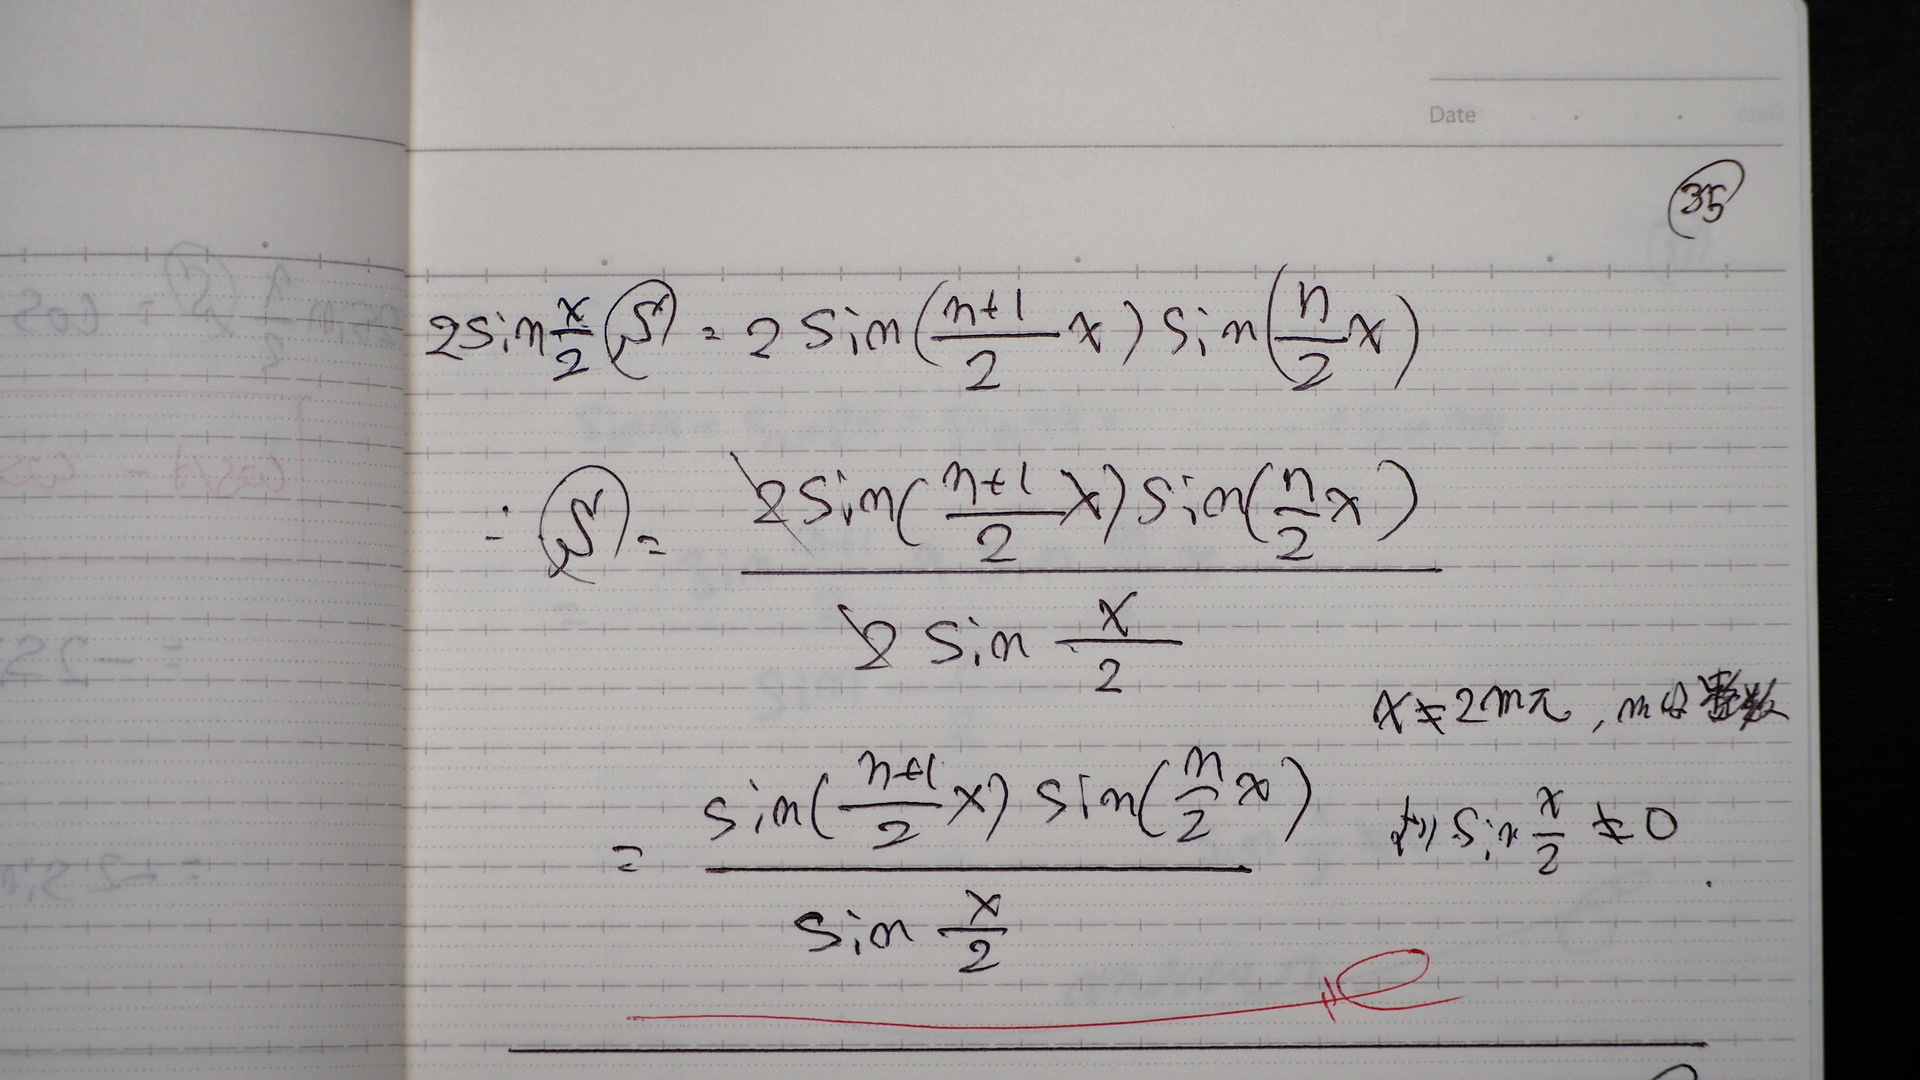 Date
㉟
2sin x/2 Ⓢ = 2 sin(n+1/2 x) sin(n/2 x)
∴ Ⓢ = 2sin(n+1/2 x) sin(n/2 x) / 2 sin x/2
x ≠ 2mπ, mは整数
= sin(n+1/2 x) sin(n/2 x) / sin x/2
より sin x/2 ≠ 0